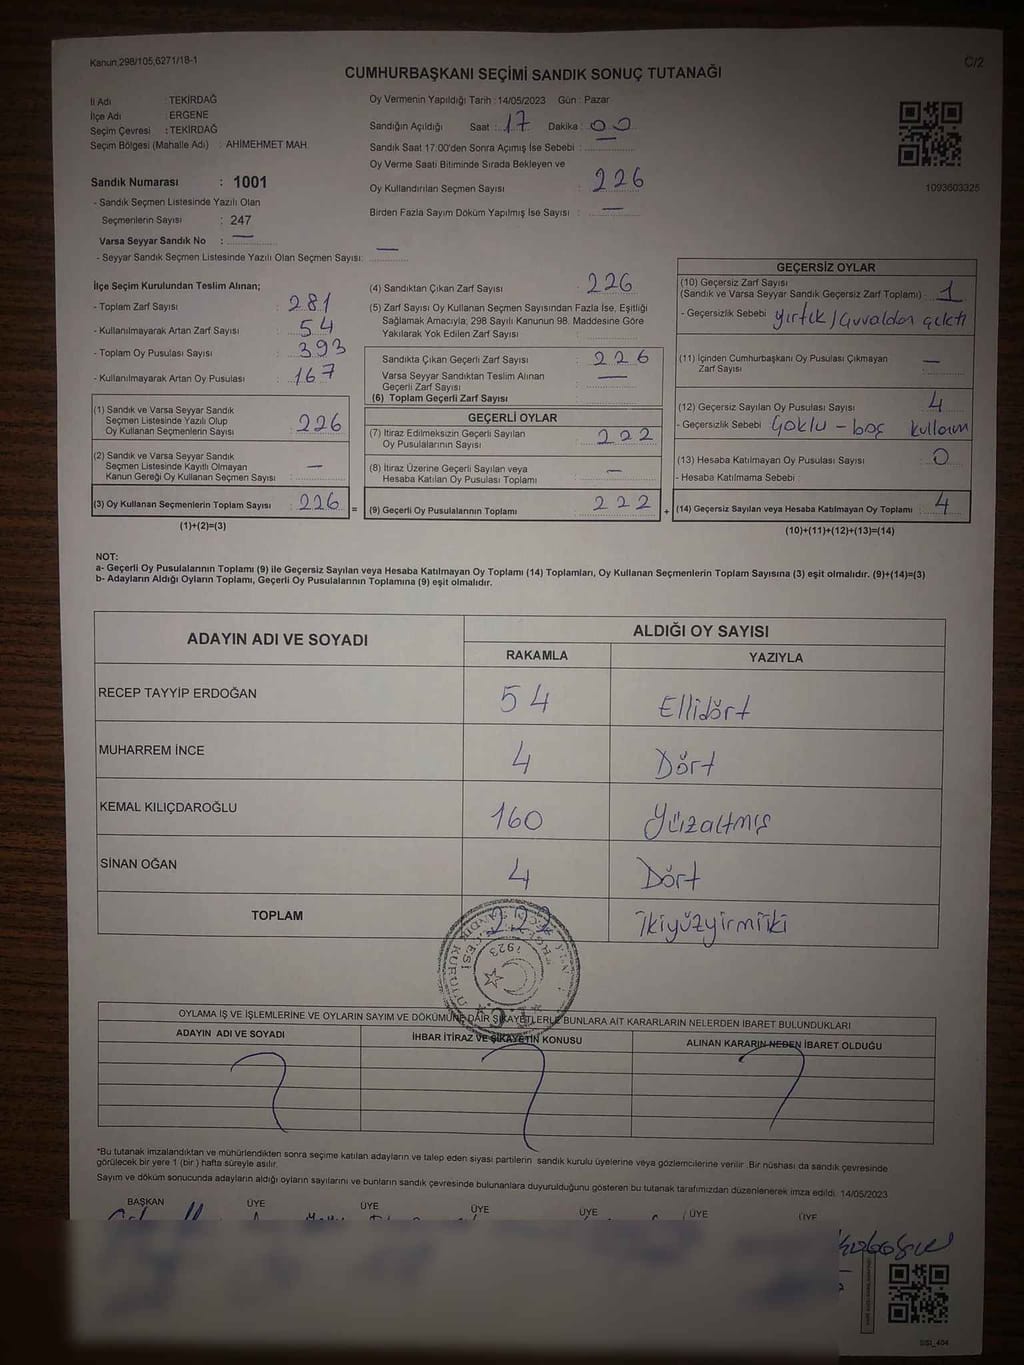 Kanun,298/105,6271/18-1
C/2
CUMHURBAŞKANI SEÇİMİ SANDIK SONUÇ TUTANAĞI
İl Adı : TEKİRDAĞ
İlçe Adı : ERGENE
Seçim Çevresi : TEKİRDAĞ
Seçim Bölgesi (Mahalle Adı) : AHİMEHMET MAH.
Sandık Numarası : 1001
- Sandık Seçmen Listesinde Yazılı Olan
Seçmenlerin Sayısı : 247
Varsa Seyyar Sandık No : —
- Seyyar Sandık Seçmen Listesinde Yazılı Olan Seçmen Sayısı: —
Oy Vermenin Yapıldığı Tarih : 14/05/2023 Gün : Pazar
Sandığın Açıldığı Saat : 17 Dakika : 00
Sandık Saat 17:00'den Sonra Açımış İse Sebebi :
Oy Verme Saati Bitiminde Sırada Bekleyen ve
Oy Kullandırılan Seçmen Sayısı : 226
Birden Fazla Sayım Döküm Yapılmış İse Sayısı : —
1093603325
İlçe Seçim Kurulundan Teslim Alınan;
- Toplam Zarf Sayısı : 281
- Kullanılmayarak Artan Zarf Sayısı : 54
- Toplam Oy Pusulası Sayısı : 393
- Kullanılmayarak Artan Oy Pusulası : 167
(1) Sandık ve Varsa Seyyar Sandık
Seçmen Listesinde Yazılı Olup
Oy Kullanan Seçmenlerin Sayısı : 226
(2) Sandık ve Varsa Seyyar Sandık
Seçmen Listesinde Kayıtlı Olmayan
Kanun Gereği Oy Kullanan Seçmen Sayısı : —
(3) Oy Kullanan Seçmenlerin Toplam Sayısı : 226
(1)+(2)=(3)
=
(4) Sandıktan Çıkan Zarf Sayısı : 226
(5) Zarf Sayısı Oy Kullanan Seçmen Sayısından Fazla İse, Eşitliği
Sağlamak Amacıyla, 298 Sayılı Kanunun 98. Maddesine Göre
Yakılarak Yok Edilen Zarf Sayısı :
Sandıkta Çıkan Geçerli Zarf Sayısı : 226
Varsa Seyyar Sandıktan Teslim Alınan
Geçerli Zarf Sayısı : —
(6) Toplam Geçerli Zarf Sayısı :
GEÇERLİ OYLAR
(7) İtiraz Edilmeksizin Geçerli Sayılan
Oy Pusulalarının Sayısı : 222
(8) İtiraz Üzerine Geçerli Sayılan veya
Hesaba Katılan Oy Pusulası Toplamı : —
(9) Geçerli Oy Pusulalarının Toplamı : 222
+
GEÇERSİZ OYLAR
(10) Geçersiz Zarf Sayısı
(Sandık ve Varsa Seyyar Sandık Geçersiz Zarf Toplamı) : 1
- Geçersizlik Sebebi : yırtık / çuvaldan çıktı
(11) İçinden Cumhurbaşkanı Oy Pusulası Çıkmayan
Zarf Sayısı : —
(12) Geçersiz Sayılan Oy Pusulası Sayısı : 4
- Geçersizlik Sebebi : Çoklu - boş kullanım
(13) Hesaba Katılmayan Oy Pusulası Sayısı : 0
- Hesaba Katılmama Sebebi :
(14) Geçersiz Sayılan veya Hesaba Katılmayan Oy Toplamı : 4
(10)+(11)+(12)+(13)=(14)
NOT:
a- Geçerli Oy Pusulalarının Toplamı (9) ile Geçersiz Sayılan veya Hesaba Katılmayan Oy Toplamı (14) Toplamları, Oy Kullanan Seçmenlerin Toplam Sayısına (3) eşit olmalıdır. (9)+(14)=(3)
b- Adayların Aldığı Oyların Toplamı, Geçerli Oy Pusulalarının Toplamına (9) eşit olmalıdır.
ADAYIN ADI VE SOYADI
ALDIĞI OY SAYISI
RAKAMLA YAZIYLA
RECEP TAYYİP ERDOĞAN 54 Ellidört
MUHARREM İNCE 4 Dört
KEMAL KILIÇDAROĞLU 160 Yüzaltmış
SİNAN OĞAN 4 Dört
TOPLAM 222 İkiyüzyirmiiki
T.C.
1923
OYLAMA İŞ VE İŞLEMLERİNE VE OYLARIN SAYIM VE DÖKÜMÜNE DAİR ŞİKAYETLERLE BUNLARA AİT KARARLARIN NELERDEN İBARET BULUNDUKLARI
ADAYIN ADI VE SOYADI İHBAR İTİRAZ VE ŞİKAYETİN KONUSU ALINAN KARARIN NEDEN İBARET OLDUĞU
*Bu tutanak imzalandıktan ve mühürlendikten sonra seçime katılan adayların ve talep eden siyasi partilerin sandık kurulu üyelerine veya gözlemcilerine verilir. Bir nüshası da sandık çevresinde
görülecek bir yere 1 (bir) hafta süreyle asılır.
Sayım ve döküm sonucunda adayların aldığı oyların sayılarını ve bunların sandık çevresinde bulunanlara duyurulduğunu gösteren bu tutanak tarafımızdan düzenlenerek imza edildi. 14/05/2023
BAŞKAN ÜYE ÜYE ÜYE ÜYE ÜYE ÜYE